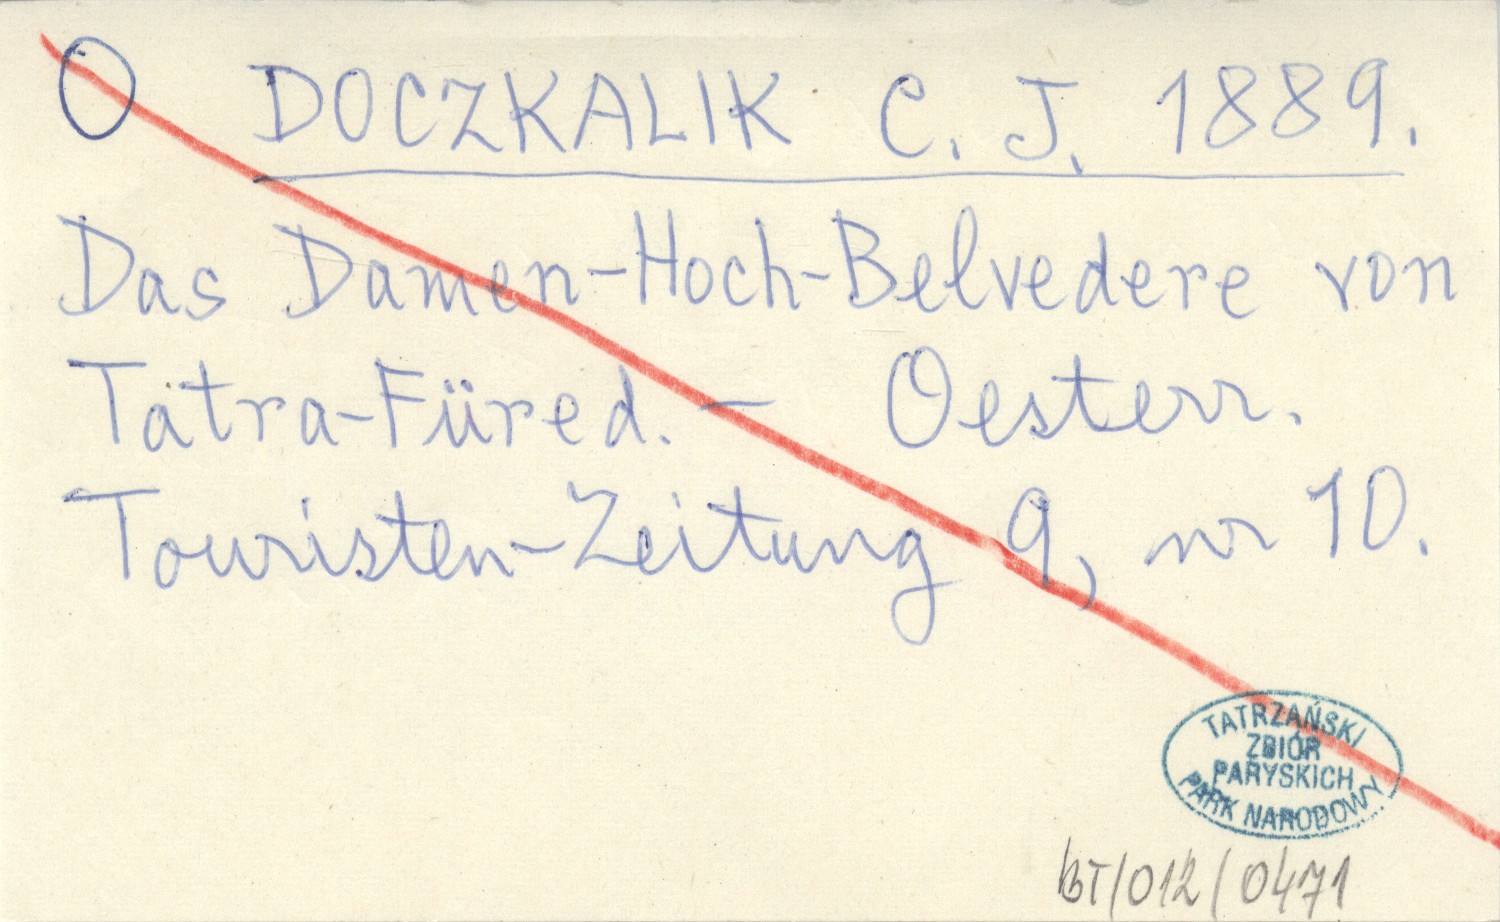 O DOCZKALIK C. J. 1889.
Das Damen-Hoch-Belvedere von
Tátra-Füred. - Oesterr.
Touristen-Zeitung 9, nr 10.
TATRZAŃSKI
ZBIÓR
PARYSKICH
PARK NARODOWY
BT/012/0471